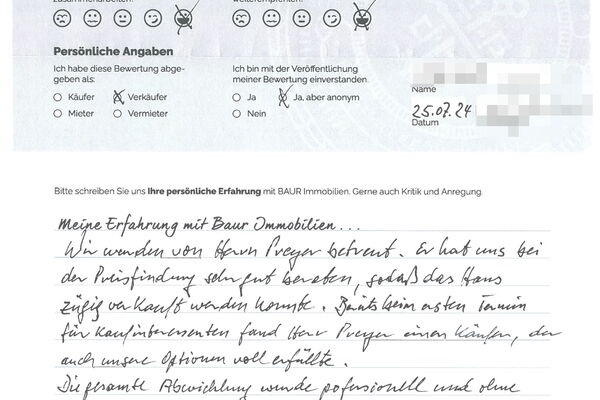 zusammenarbeiten.
weiterempfehlen.
Persönliche Angaben
Ich habe diese Bewertung abge-
geben als:
Käufer
Verkäufer
Mieter
Vermieter
Ich bin mit der Veröffentlichung
meiner Bewertung einverstanden.
Ja
Ja, aber anonym
Nein
Name
25.07.24
Datum
Bitte schreiben Sie uns Ihre persönliche Erfahrung mit BAUR Immobilien. Gerne auch Kritik und Anregung.
Meine Erfahrung mit Baur Immobilien...
Wir wurden von Herrn Preyer betreut. Er hat uns bei
der Preisfindung sehr gut beraten, sodaß das Haus
zügig verkauft werden konnte. Bereits beim ersten Termin
für Kaufinteressenten fand Herr Preyer einen Käufer, der
auch unsere Optionen voll erfüllte.
Die gesamte Abwicklung wurde pofessionell und ohne